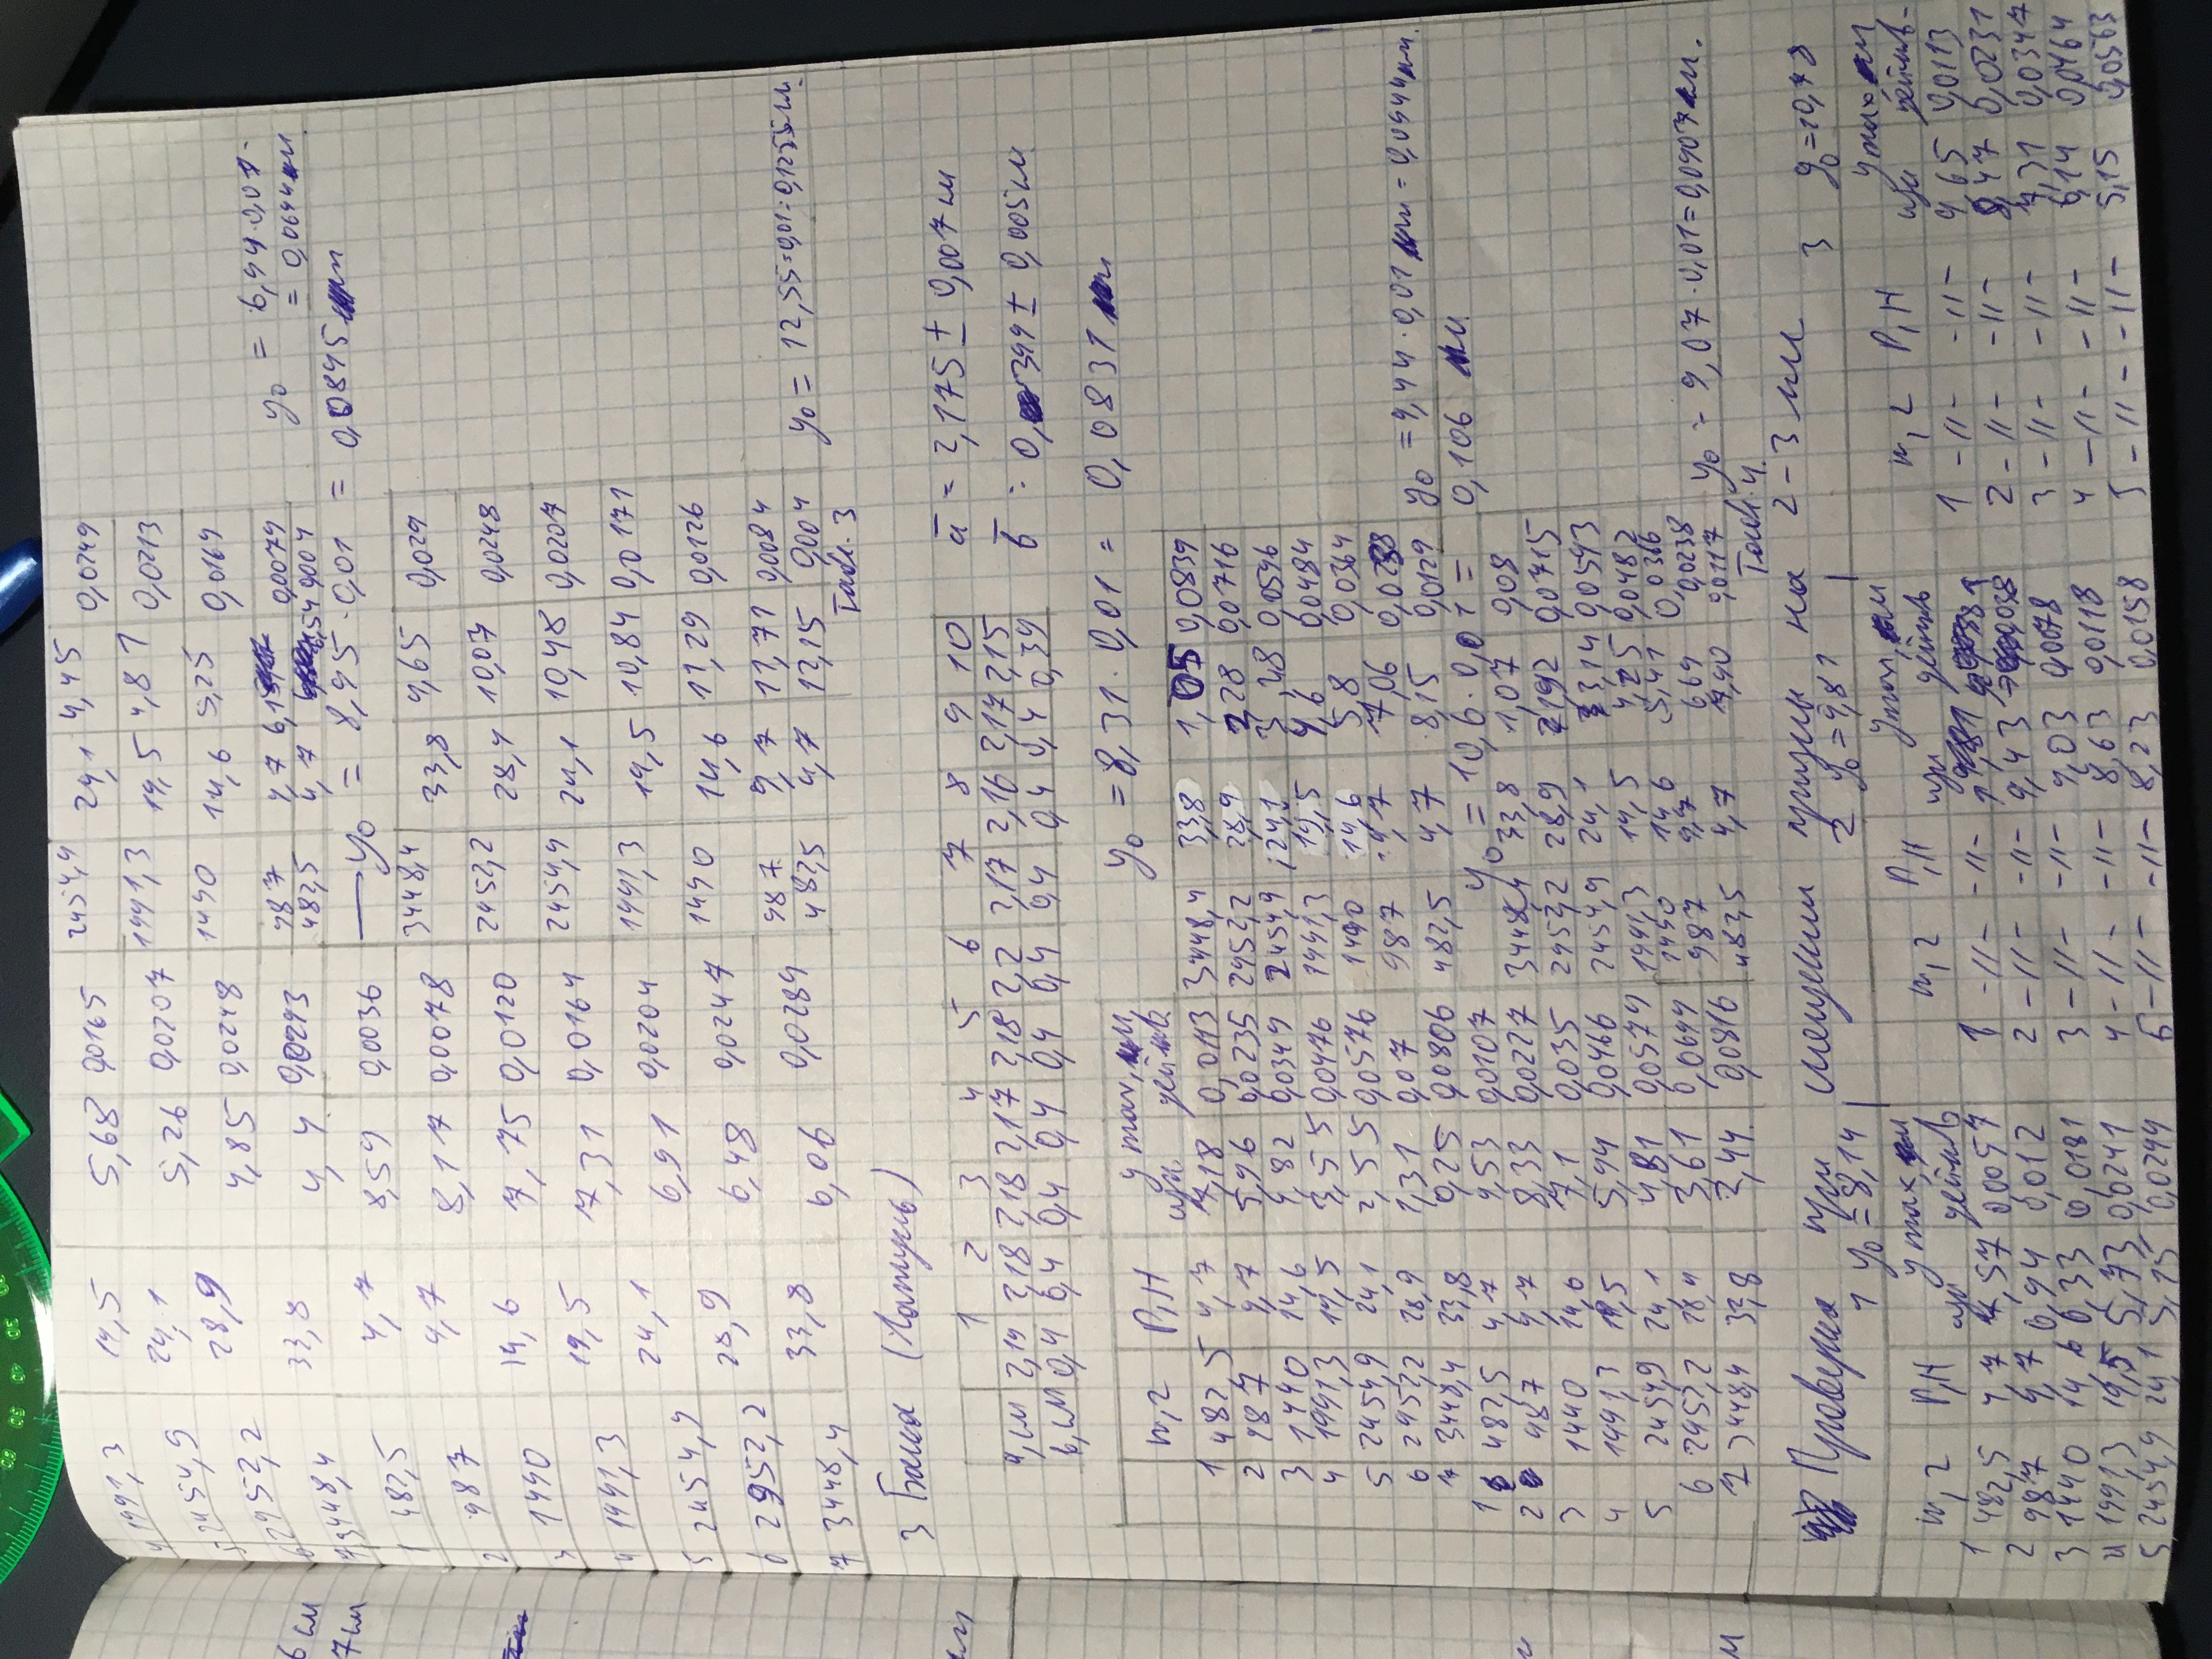 4 1991,3 19,5 5,68 0,0165 2454,9 24,1 4,45 0,0249
5 2454,9 24,1 5,26 0,0207 1991,3 19,5 4,81 0,0213
6 2952,2 28,9 4,85 0,0248 1490 14,6 5,25 0,0169
7 3448,4 33,8 4,4 0,0293 987 9,7 0,0079
482,5 4,7 0,004
y₀ = 6,94·0,01 =
= 0,0644 мм
6 см
7 см
→ y₀ = 8,95·0,01 = 0,0895 мм
1 482,5 4,7 8,59 0,0036 3448,4 33,8 9,65 0,029
2 987 9,7 8,17 0,0078 2952,2 28,9 10,07 0,0248
3 1490 14,6 7,75 0,0120 2454,9 24,1 10,48 0,0207
4 1991,3 19,5 7,31 0,0164 1991,3 19,5 10,84 0,0171
5 2454,9 24,1 6,91 0,0204 1490 14,6 11,29 0,0126
6 2952,2 28,9 6,48 0,0247 987 9,7 11,71 0,0084
7 3448,4 33,8 6,06 0,0289 482,5 4,7 12,15 0,004
y₀ = 12,55·0,01=0,1255 мм.
Табл. 3
3 Балка (Латунь)
1 2 3 4 5 6 7 8 9 10
a, см 2,19 2,18 2,18 2,17 2,18 2,2 2,17 2,16 2,17 2,15
b, см 0,4 0,4 0,4 0,4 0,4 0,4 0,4 0,4 0,4 0,39
a̅ = 2,175 ± 0,007 см
b̅ = 0,399 ± 0,005 см
y₀ = 8,31·0,01 = 0,0831 мм
m, г P, Н y max, мм,
изм действ.
1 482,5 4,7 7,18 0,0113 3448,4 33,8 1,05 0,0839
2 987 9,7 5,96 0,0235 2952,2 28,9 2,28 0,0716
3 1490 14,6 4,82 0,0349 2454,9 24,1 3,48 0,0596
4 1991,3 19,5 3,55 0,0476 1991,3 19,5 4,6 0,0484
5 2454,9 24,1 2,55 0,0576 1490 14,6 5,8 0,0364
6 2952,2 28,9 1,31 0,07 987 9,7 7,06 0,0238
7 3448,4 33,8 0,25 0,0806 482,5 4,7 8,15 0,0129
y₀ = 9,44·0,01 мм = 0,0944 мм.
y₀ = 10,6·0,01 = 0,106 мм.
1 482,5 4,7 9,53 0,0107
2 987 9,7 8,33 0,0227 3448,4 33,8 1,07 0,08
3 1490 14,6 7,1 0,035 2952,2 28,9 1,92 0,0715
4 1991,3 19,5 5,94 0,0466 2454,9 24,1 3,14 0,0593
5 2454,9 24,1 4,81 0,0579 1991,3 19,5 4,25 0,0482
6 2952,2 28,9 3,61 0,0699 1490 14,6 5,41 0,0366
7 3448,4 33,8 2,44 0,0816 987 9,7 6,69 0,0238
482,5 4,7 7,90 0,0117
y₀ = 9,07·0,01=0,0907 мм.
Табл. 4.
Проверка при смещении призмы на 2-3 мм
1 y₀ = 8,14
2 y₀ = 9,81
3 y₀=10,78
m, г P, Н y max, мм
изм действ
1 482,5 4,7 7,57 0,0057
2 987 9,7 6,94 0,012
3 1490 14,6 6,33 0,0181
4 1991,3 19,5 5,73 0,0241
5 2454,9 24,1 5,15 0,0299
m, г P, Н y max, мм
изм действ
1 -//- -//-
2 -//- -//- 9,43 0,0038
3 -//- -//- 9,03 0,0078
4 -//- -//- 8,63 0,0118
5 -//- -//- 8,23 0,0158
m, г P, Н y max, мм
изм действ-
1 -//- -//- 9,65 0,0113
2 -//- -//- 8,47 0,0231
3 -//- -//- 7,31 0,0347
4 -//- -//- 6,14 0,0464
5 -//- -//- 5,15 0,0563